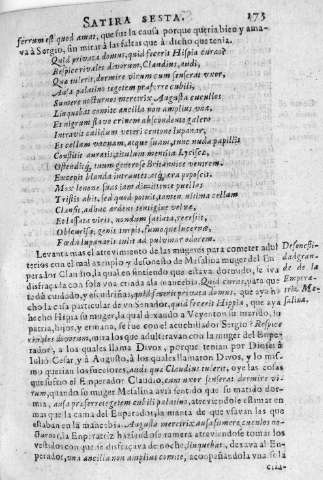 SATIRA SESTA. 175
ferrum est quod amat, que fue la causa porque queria bien y ama-
va à Sergio, sin mirar à las faltas que à dicho que tenia.
Quid privata domus, quid fecerit Hippia curas?
Respice rivales divorum, Claudius, audi,
Quæ tulerit, dormire virum cum senserat uxor,
Ausa palatino tegetem præferre cubili,
Sumere nocturnos meretrix Augusta cucullos
Linquebat comite ancilla non amplius una,
Et nigrum flavo crinem abscondente galero
Intravit calidum veteri centone lupanar,
Et cellam vacuam, atque suam, tunc nuda papillis
Constitit auratis, titulum mentita Lyciscæ,
Ostenditq, tuum generose Britannice ventrem.
Excepit blanda intrantes, atq, æra poposcit.
Mox lenone suas iam dimittente puellas
Tristis abit, sed quod potuit, tamen ultima cellam
Clausit, adhuc ardens
Et lassata viris, nondum satiata, recessit,
Obscurisq, genis turpis, fumoque lucernæ
Fœda lupanaris tulit ad pulvinar odorem.
Levanta mas el atrevimiento de las mugeres para cometer adul
terios con el mal exemplo y desonesto de Mesalina muger del En-
perador Claudio, la qual en sintiendo que estava dormido, se iva
disfraçada con sola una criada a la mancebia. Quid curas, para que
to dà cuidado, y escudriñas, quid fecerit privata domus, que aya he
cho la casa particular de un Senador, quid fecerit Hippia, que aya
hecho Hipia su muger, la qual dexando a Veyenton su marido, su
patria, hijos, y ermana, se fue con el acuchillador Sergio? Respice
rivales divorum, mira los que adulteravan con la muger del Enpe
rador, a los quales llama Divos, porque tenian por Dioses à
Iulio Cesar, y à Augusto, à los quales llamaron Divos, y lo mis-
mo querian los sucesores, audi quæ Claudius tulerit, oye las cosas
que sufrio el Enperador Claudio, cum uxor senserat dormire vi-
rum, quando su muger Mesalina avia sentido que su marido dor-
mia, ausa præferre tegetem cubili palatino, atreviendose estimar en
mas que la cama del Enperador, la manta de que usavan las que
estaban en la mancebia. Augusta meretrix ausa sumere cucullos no-
cturnos, la Enperatriz haziendo se ramera atreviendose tomar los
vestidos con que se disfraçava de noche, linquebat, dexava al En-
perador, una ancilla non amplius comite, acompañandola una sola
cria-
Desonesti-
dad gran-
de de la
Empera-
triz Me-
salina.